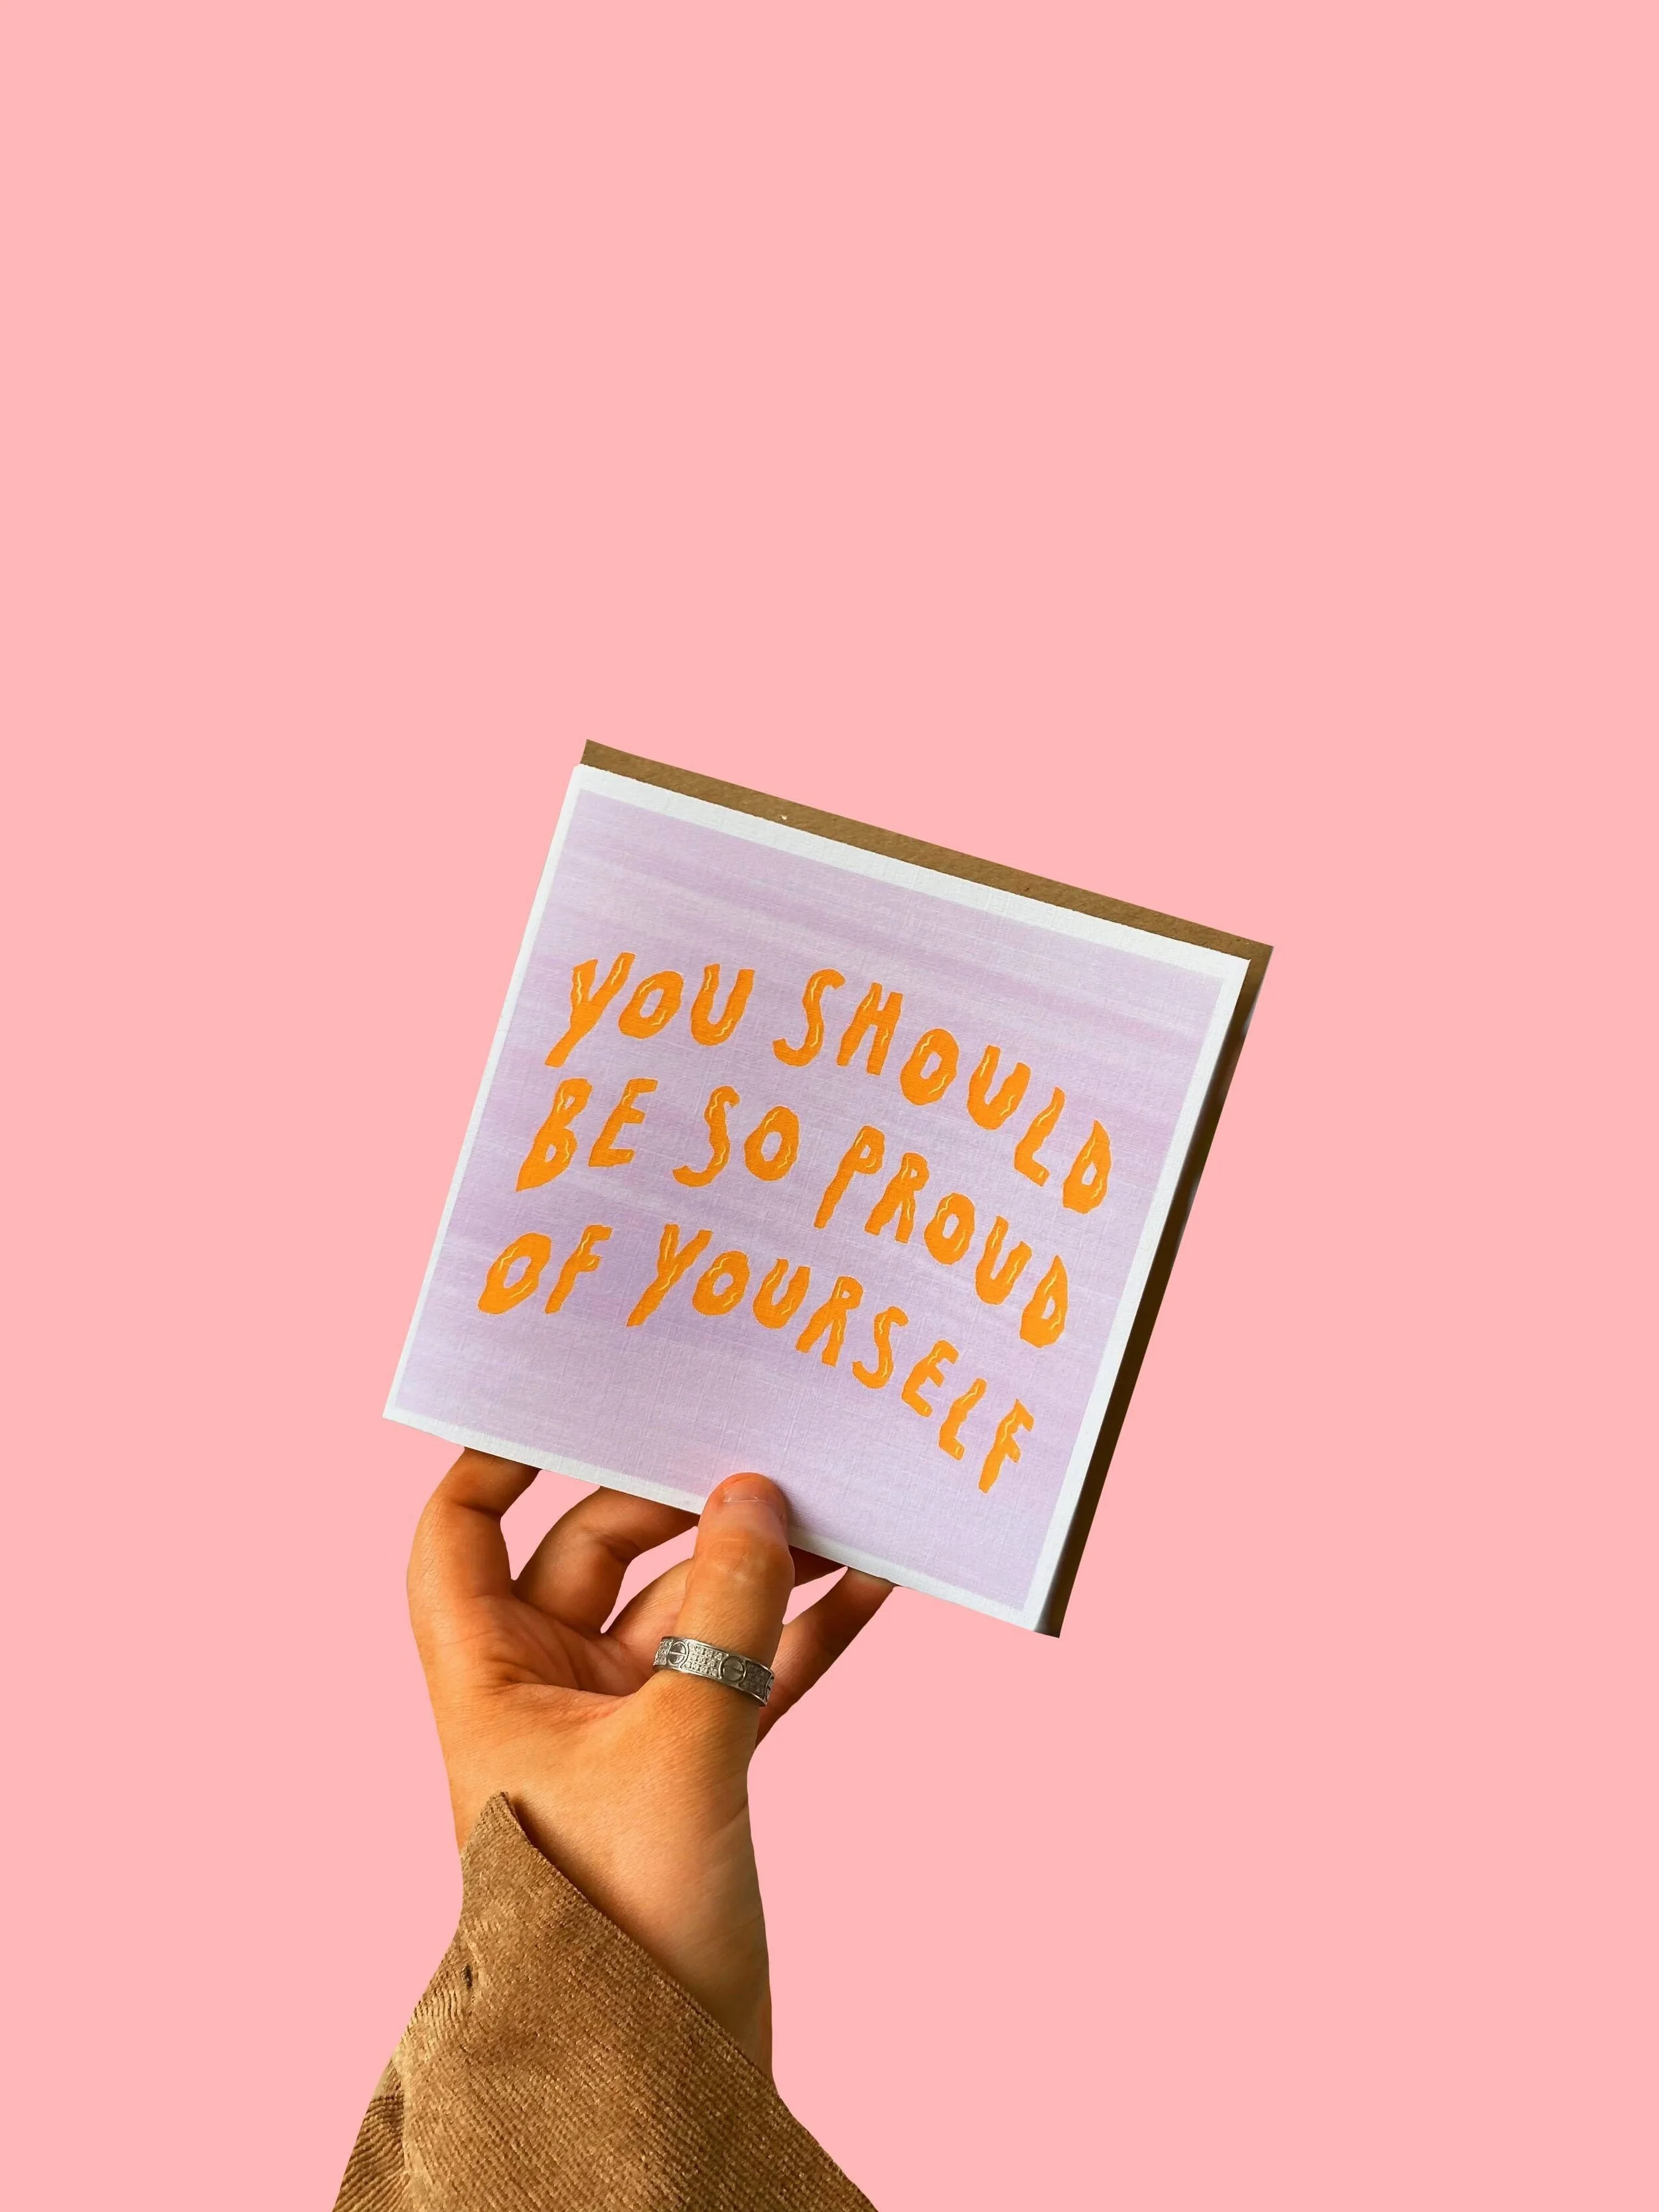 YOU SHOULD
BE SO PROUD
OF YOURSELF